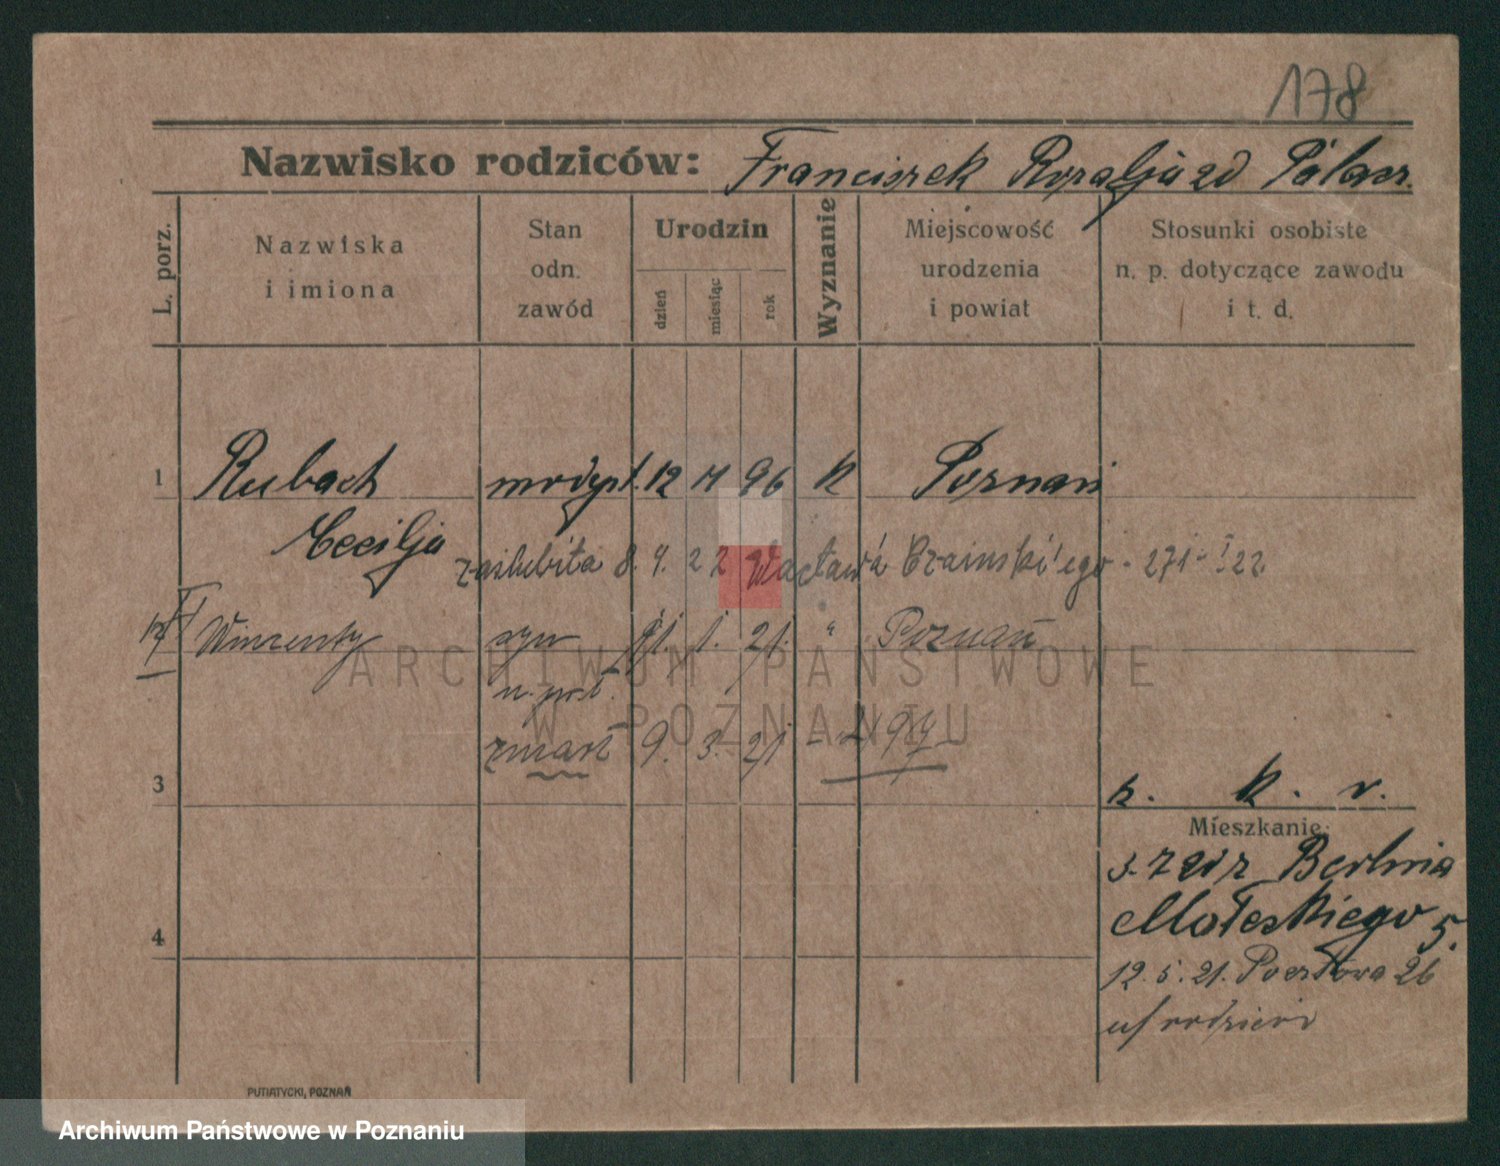 178
Nazwisko rodziców: Franciszek Rozalja zd
L. porz.
Nazwiska i imiona
Stan odn. zawód
Urodzin
dzień
miesiąc
rok
Wyznanie
Miejscowość urodzenia i powiat
Stosunki osobiste n. p. dotyczące zawodu i t. d.
1 Rubach modyst. 12 11 96 k Poznań
Cecilja
zaślubiła 8. 4. 22 Wacława 271 I 22
Wincenty syn 1. 21. " Poznań
ARCHIWUM PAŃSTWOWE
W POZNANIU
zmarł 9. 3. 21
3
k. r.
Mieszkanie:
3. z Berlina
4
5.
12. 5. 21. Pocztowa 26
PUTIATYCKI, POZNAŃ
Archiwum Państwowe w Poznaniu